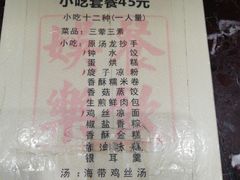 小吃套餐45元
小吃十二种(一人量)
菜品：三荤三素
小吃：原汤龙抄手
钟水饺
蛋烘糕
旋子凉粉
香酥糯米卷
香菇蒸饺
生煎鲜肉包
鸡丝凉面
椒盐香粽
香酥金糕
银耳羹
汤：海带鸡丝汤